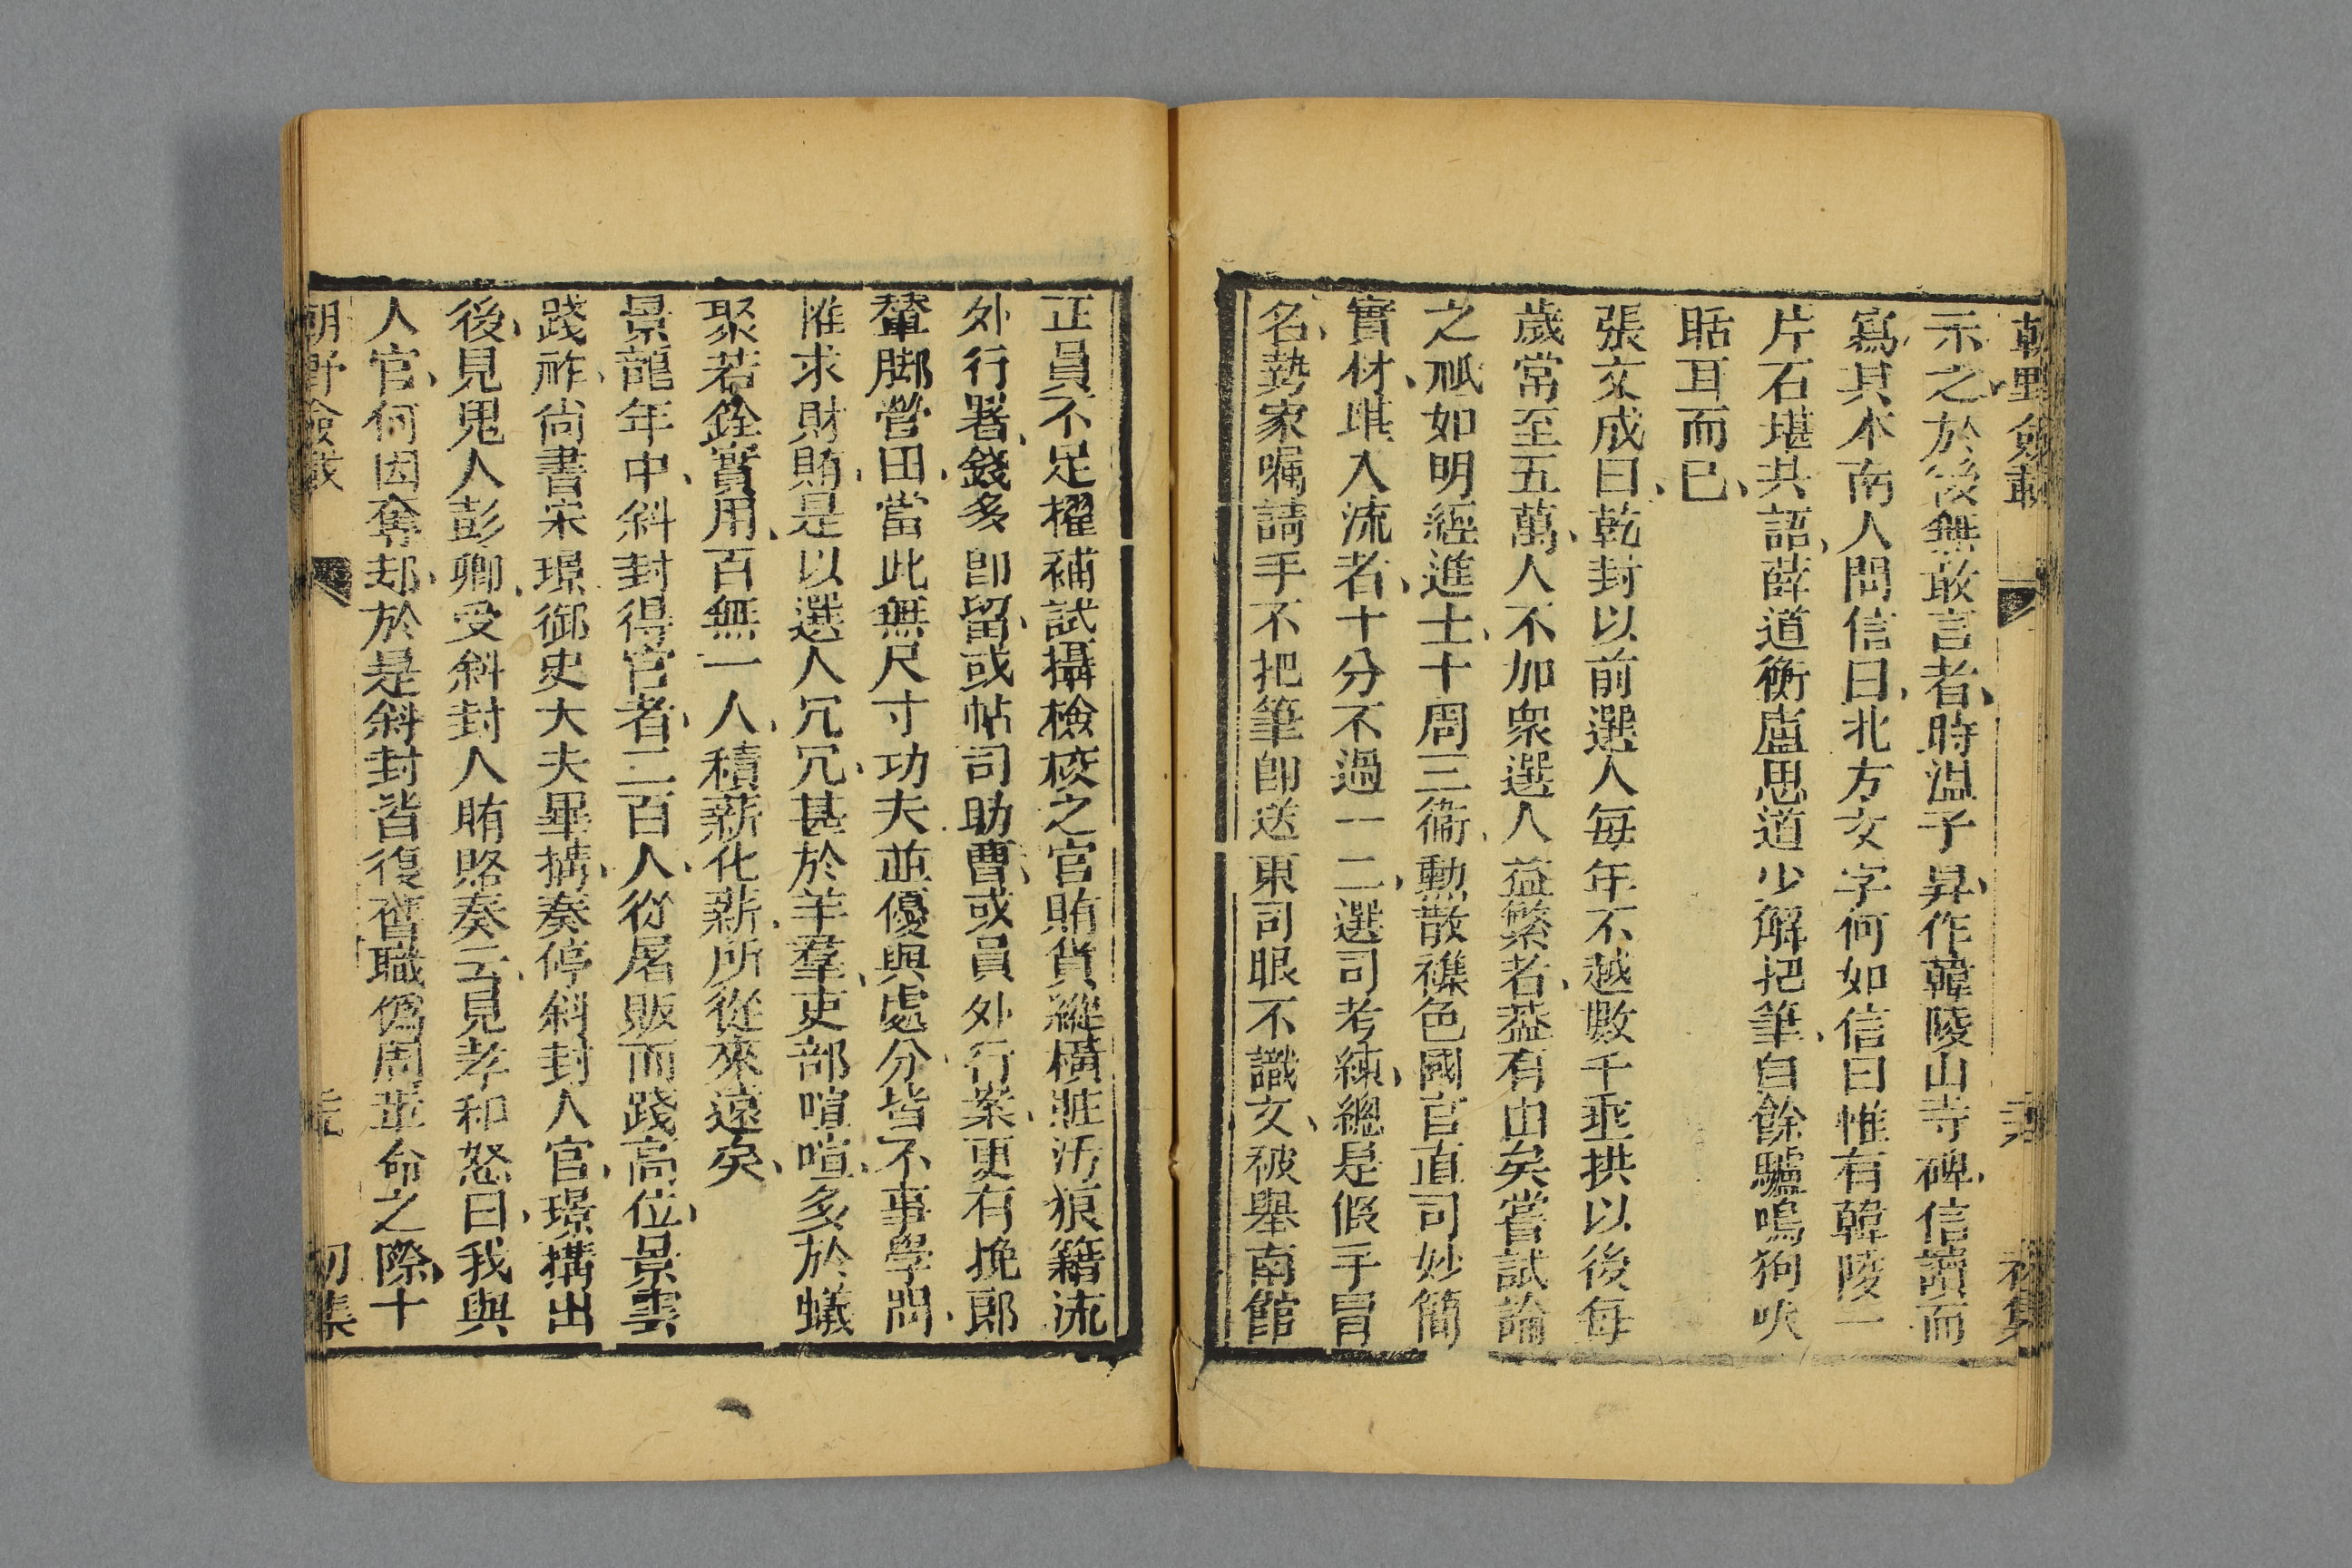 朝野僉載
初集
示之於後無敢言者時溫子昇作韓陵山寺碑信讀而
寫其本南人問信曰北方文字何如信曰惟有韓陵一
片石堪共語薛道衡盧思道少解把筆自餘驢鳴狗吠
聒耳而已
張文成曰乾封以前選人每年不越數千垂拱以後每
歲常至五萬人不加衆選人益繁者葢有由矣嘗試論
之祇如明經進士十周三衞勲散襍色國官直司妙簡
實材堪入流者十分不過一二選司考練總是假手冐
名勢家囑請手不把筆卽送東司眼不識文被舉南館
正員不足權補試攝檢校之官賄貨縱橫贓汚狼籍流
外行署錢多卽留或帖司助曹或員外行案更有挽郎
輦脚營田當此無尺寸功夫並優與處分皆不事學問
惟求財賄是以選人冗冗甚於羊羣吏部喧喧多於蟻
聚若銓實用百無一人積薪化薪所從來遠矣
景龍年中斜封得官者二百人從屠販而踐高位景雲
踐祚尚書宋璟御史大夫畢搆奏停斜封人官璟搆出
後見鬼人彭卿受斜封人賄賂奏云見孝和怒曰我與
人官何因奪却於是斜封皆復舊職僞周革命之際十
朝野僉載
初集